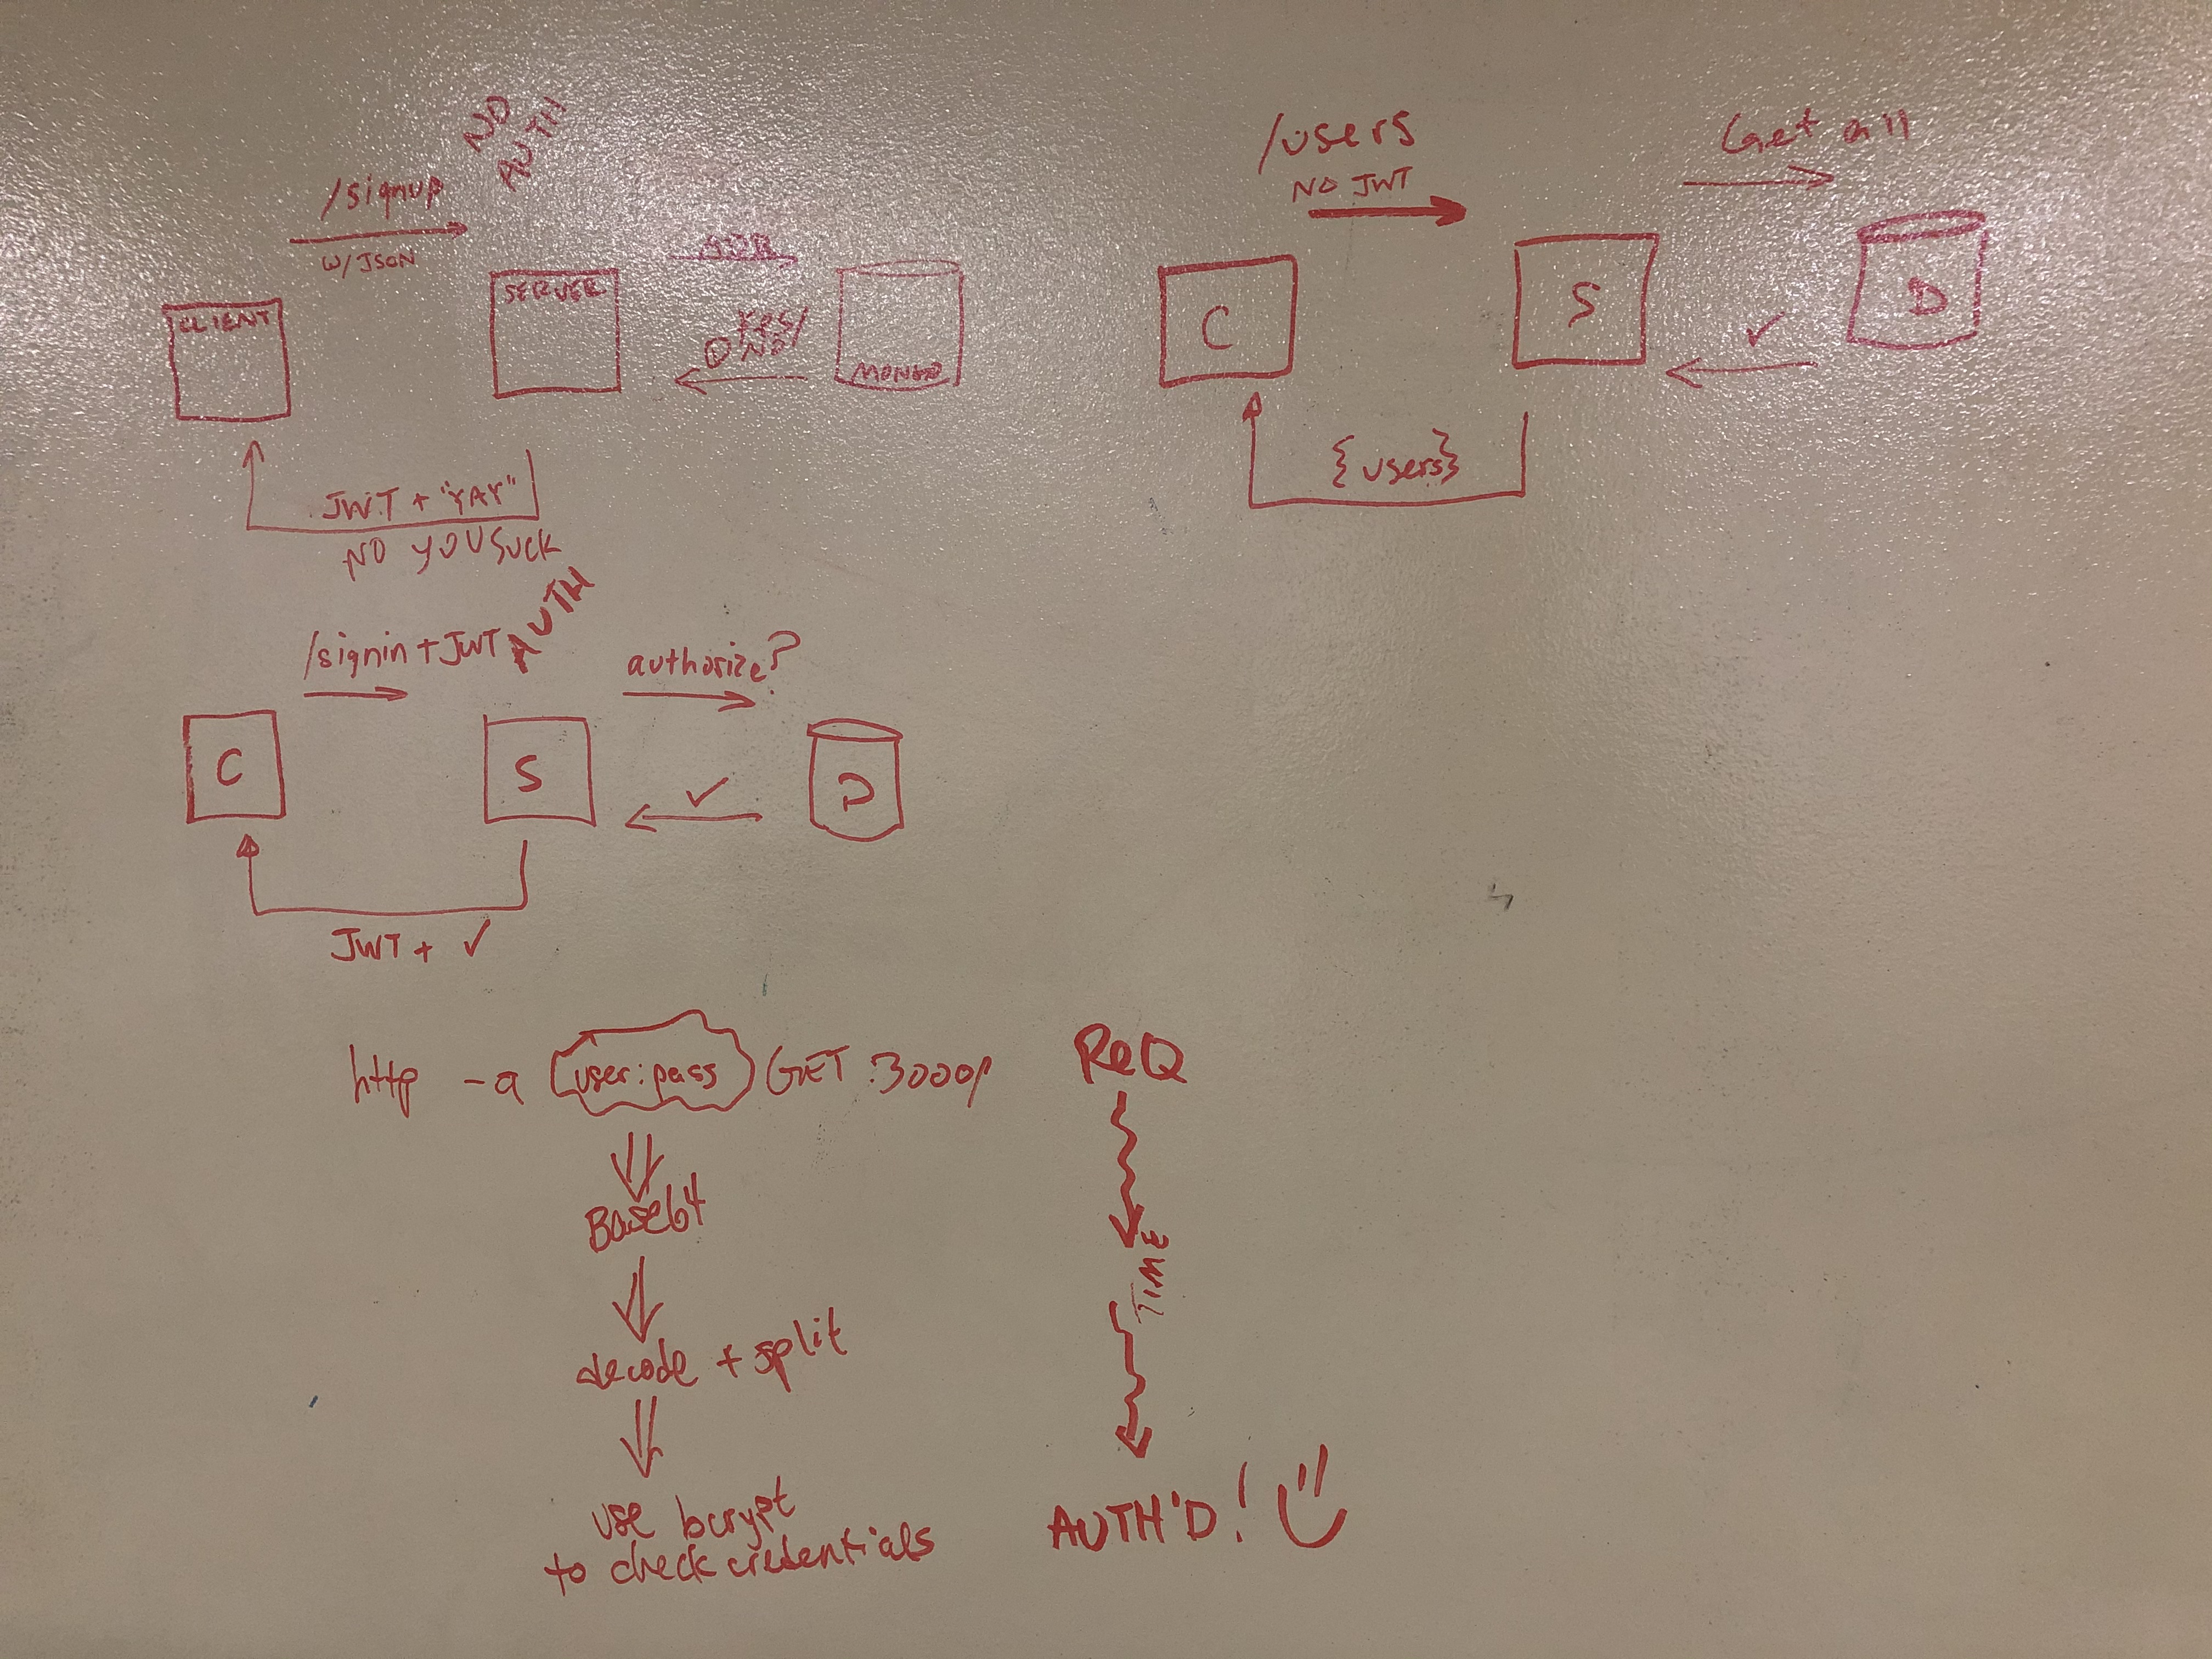 NO
AUTH
/signup
W/JSON
CLIENT
SERVER
Yes/
NO
MONGO
JWT + "YAY"
NO YOU SUCK
/users
NO JWT
Get all
C
S
D
✓
{users}
/signin + JWT
AUTH
authorize?
C
S
D
✓
JWT + ✓
http -a user:pass GET :3000/
Base64
decode + split
use bcrypt
to check credentials
ReQ
TIME
AUTH'D!